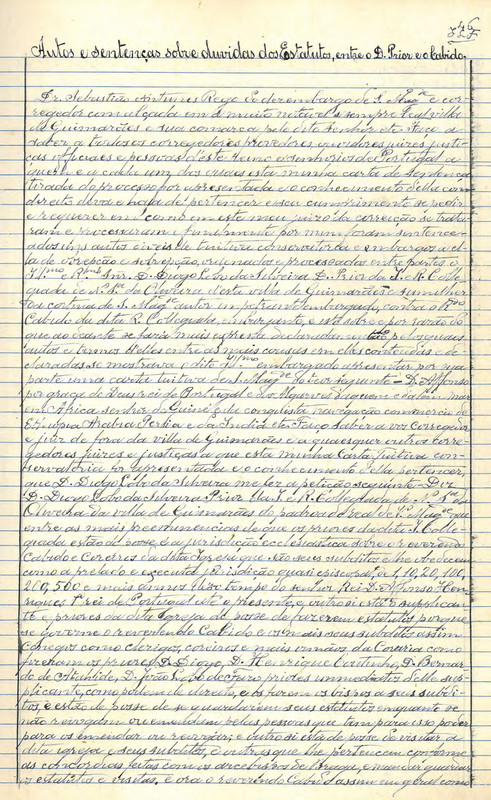 Autos e sentenças sobre duvidas dos Estatutos, entre o D. Prior e o Cabido.
Dr. Sebastião Antunes Rego do desembargo de S. Mag.de e cor-
regedor com alçada em a muito notavel e sempre leal villa
de Guimarães e sua comarca pelo dito senhor etc. Faço a
saber a todos os corregedores provedores ouvidores juizes justi-
ças officiaes e pessoas d'este reino e senhorios de Portugal a
quem e a cada um dos quaes esta minha carta de sentença
tirada do processo for apresentada e o conhecimento d'ella com
direito deva e haja de pertencer e seu cumprimento se pedir
e requerer em como em este meu juizo da correição se trata-
ram e processaram e finalmente por mim foram sentence-
ados uns autos civeis de tuitiva conservatoria e embargos a el-
la de obrepção e subrepção, ordenados e processados entre partes o
Ill.mo e R.mo Snr. D. Diogo Lobo da Silveira D. Prior da I. R. Colle-
giada de N.ª S.ª da Oliveira d'esta villa de Guimarães e sumilher
da cortina de S. Mag.de autor impetrante embargado, contra o R.do
Cabido da dita R. Collegiada, embargante, e isto sobre e por razão do
que ao diante se fará mais expressa e declarada menção pelos quaes
autos e termos d'elles entre as mais cousas em elles conteudas e de-
claradas se mostrava o dito Ill.mo embargado apresentar por sua
parte uma carta tuitiva de S. Mag.de do teor seguinte — D. Affonso
por graça de Deus rei de Portugal e dos Algarves d'aquem e d'alem mar
em Africa senhor de Guiné e da conquista navegação commercio da
Ethiopia Arabia Persia e da India etc. Faço saber a vós Corregedor
e juiz de fóra da villa de Guimarães e a quaesquer outros corre-
gedores juizes e justiças a que esta minha Carta tuitiva con-
servatoria for apresentada e o conhecimento d'ella pertencer,
que D. Diogo Lobo da Silveira me fez a petição seguinte — Diz
D. Diogo Lobo da Silveira Prior da I. R. Collegiada de N.ª S.ª da
Oliveira da villa de Guimarães do padroado real de V. Mag.de que
entre as mais preeminencias de que os priores da dita I. Colle-
giada estão de posse é a jurisdicção ecclesiastica sobre o reverendo
Cabido e Coreiros da dita Igreja que são seus subditos e lhe obedecem
como a prelado e executa jurisdicção quasi episcopal, de 1, 10, 20, 100,
200, 500 e mais annos desde tempo do senhor Rei D. Affonso Hen-
riques 1.º rei de Portugal até o presente, e outrosi está o supplican-
te e priores da dita Igreja de posse de fazerem estatutos porque
se governe o reverendo Cabido e os mais seus subditos assim
conegos como clerigos, coreiros e mais irmãos da Coraria como
fizeram os priores D. Diogo, D. Henrique Coutinho, D. Bernar-
do de Athaide, D. João Lobo de Faro priores immediatos d'elle sup-
plicante, como podem de direito, e os fazem os bispos a seus subdi-
tos, e estão de posse de se guardarem seus estatutos enquanto se
não revogam ou emendam pelas pessoas que tem para isso poder
para os emendar ou revogar; e outro si está de posse de visitar a
dita igreja e seus subditos, e outros que lhe pertencem conforme
as concordias feitas com os arcebispos de Braga, e mandar guardar
os estatutos e visitas. e ora o reverendo Cabido assim em geral como